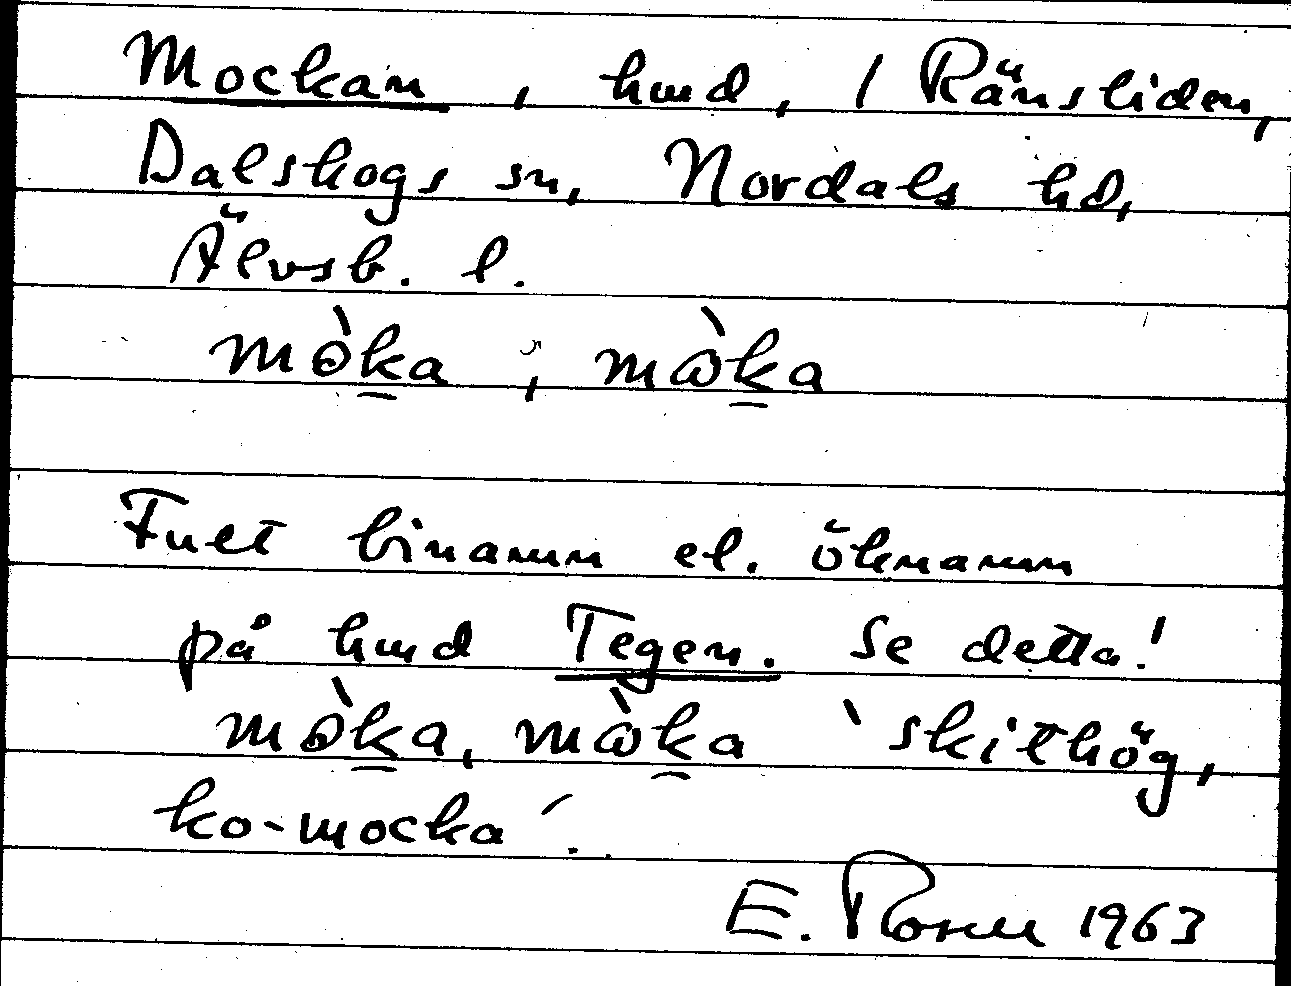 Mockan, hmd, i Ränsliden,
Dalskogs sn, Nordals hd,
Älvsb. l.
mòka, mὼka
Fult binamn el. öknamn
på hmd Tegen. Se detta!
mòka, mὼka `skithög,
ko-mocka´.
E. Rosell 1963